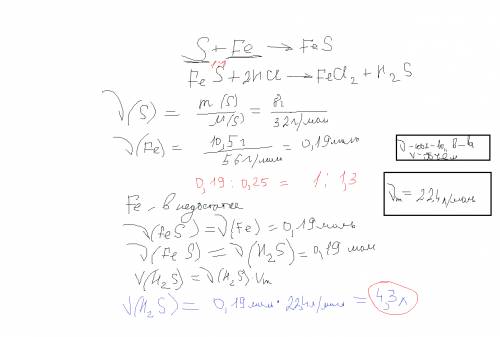 S + Fe → FeS
1:1
FeS + 2HCl → FeCl₂ + H₂S
ν(S) = m(S)/M(S) = 8г/32г/мол
ν(Fe) = 10,5г/56г/мол = 0,19моль
ν-кол-во, В-ва
V-объём
0,19 : 0,25 = 1 : 1,3
Vm = 22,4л/мол
Fe - в недостатке
ν(FeS) = ν(Fe) = 0,19моль
ν(FeS) = ν(H₂S) = 0,19 мол
V(H₂S) = ν(H₂S) Vm
V(H₂S) = 0,19мол · 22,4л/мол = 4,3л